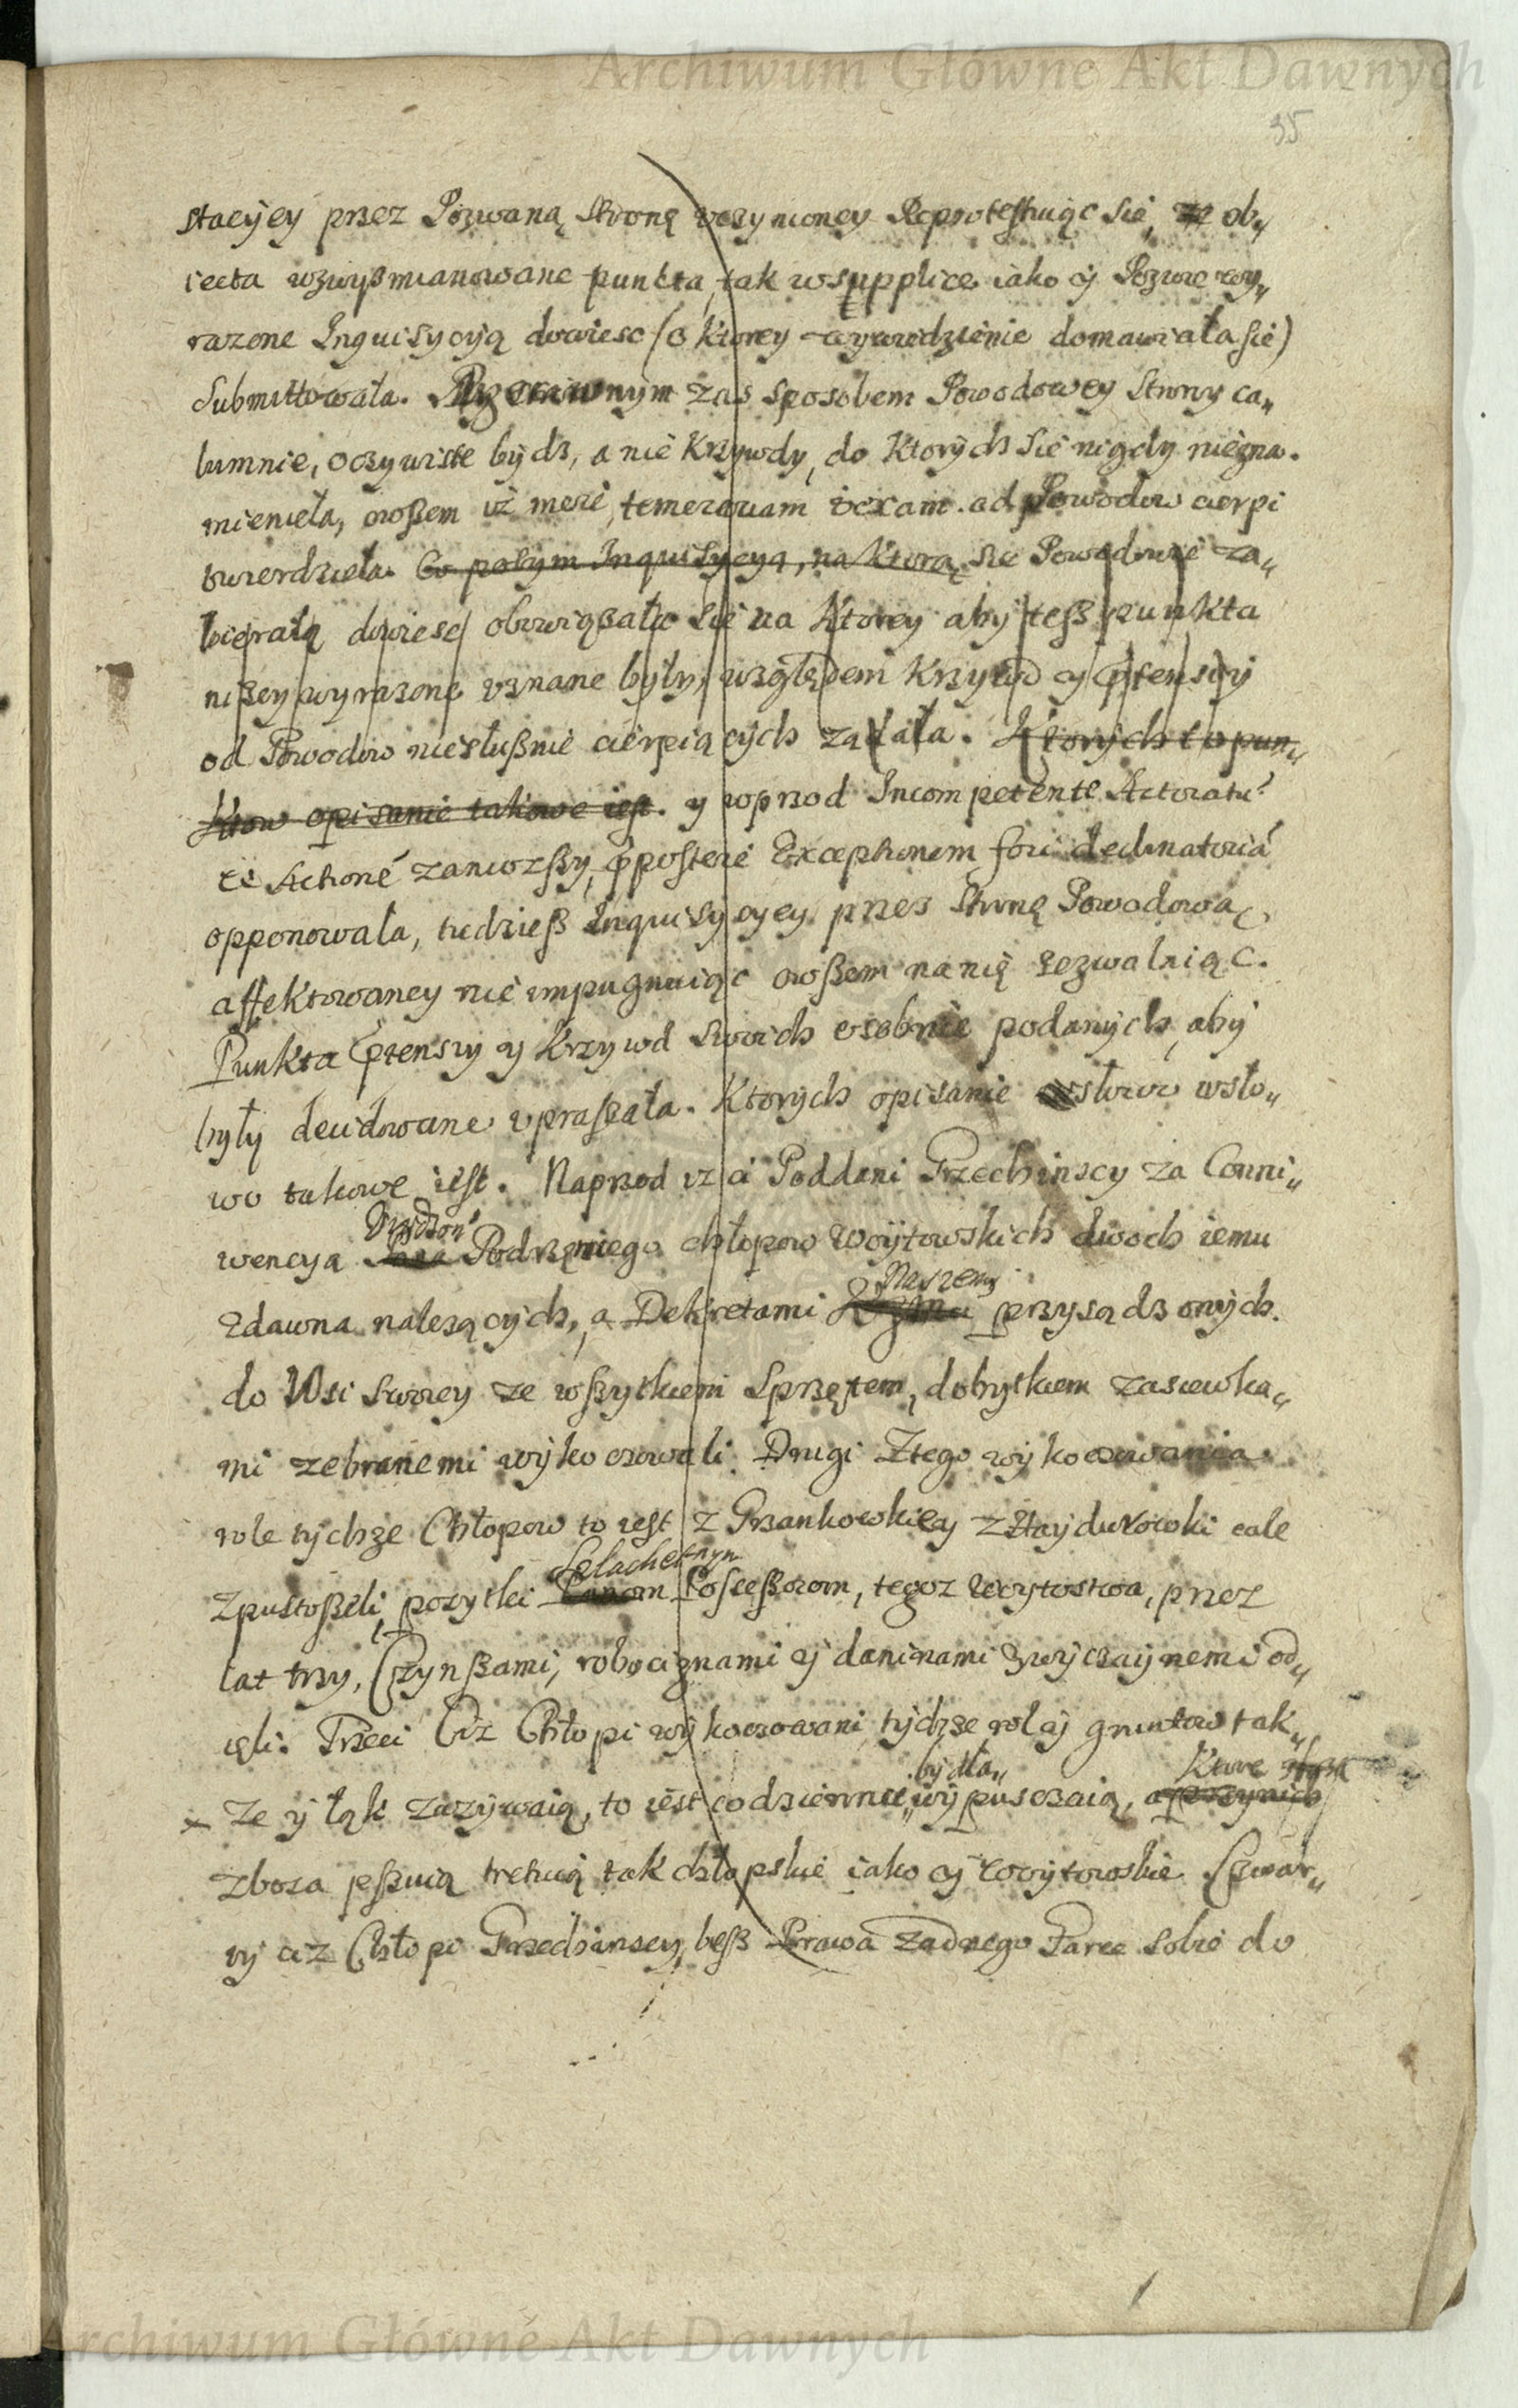 Archiwum Główne Akt Dawnych
35
stacyjey przez Pozwaną Stronę uczynioney Reprotestuiąc Sie, ze ob„
iecta wzwyß mianowane punkta, tak w supplice iako y Pozwie wy„
razone Inquisycyią dowiesc (o Ktorey wywiedzienie domawiała sie)
Submittowała. Przeciwnym zas sposobem Powodowey Strony ca„
lumnie, oczywiste bydz, a nie Krzywdy, do Ktorych Sie nigdy niezna.
mieniela, owßem iż mere temerariam vexam. ad Powodow cierpi
twierdzieła. Co poßym Inquisycyą, na Ktorą sie Powodowie za„
bierałą dowiesc obowiązała Sie na Ktorey aby teß punkta
nizey wyrazone uznane były, względem Krzywd y ptensiy
od Powodow niesłußnie cierpiących ządała. Ktorych to pun„
ktow opisanie takowe iest. y wprzod Incompetente Actoratu
et Actione zaniozßy, postere Exceptionem fori declinatoria
opponowała, tudzieß Inquisycyey przez Stronę Powodową
affektowaney nie impugnuiąc owßem na nię zezwalaiąc.
Punkta ptensiy y Krzywd Swoich osobnie podanych, aby
były decidowane upraszała. Ktorych opisanie słowo wsło„
wo takowe iest. Naprzod iz ci Poddani Trzechinscy za Conni„
wencya Podrzęniego chłopow Woytowskich dwoch iemu
Naszemi
zdawna nalezących, a Dekretami przysądzonych.
do Wsi Swoiey ze wßytkiem Sprzętem, dobytkiem zasiewka„
mi zebranemi wykoczowali. Drugi Ztego wykoczowania
role tychze Chłopow to iest z Grzankowskiey z Haydukowki cale
Szlachetnym
zpustoßeli, pozytki Panom Posseßorom, tegoz Woytostwa, przez
lat trzy, Czynßami, robociznami y daninami zwyczaynemi od„
ięli. Trzeci Iż Chłopi wykoczowani, tychze rol y gruntow tak„
bydła„ Ktore
ze y łąk zazywaią, to iest codziennie wypuszczaią,
zboza pßuią tretuią tak chłopskie iako y Woytowskie. Czwar„
ty iz Chłopi Trzechinscy, beß Prawa zadnego Parce Sobie do
Archiwum Główne Akt Dawnych